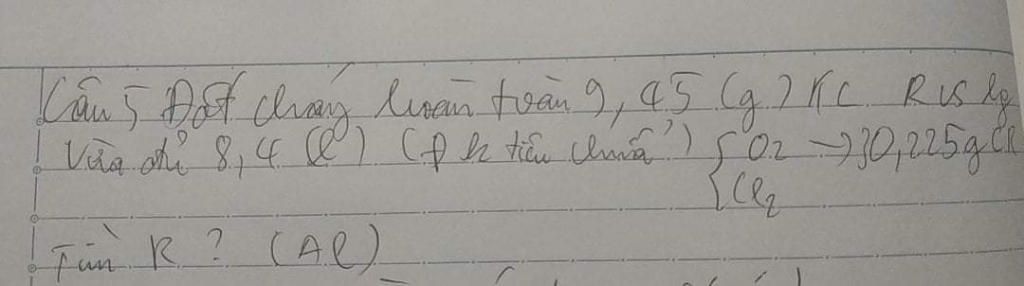 Câu 5 Đốt cháy hoàn toàn 9,45 (g) KL R vs lg
Vừa đủ 8,4 (l) (đk tiêu chuẩ) { O2 → 30,225g CR
Cl2
Tìm R ? (Al)